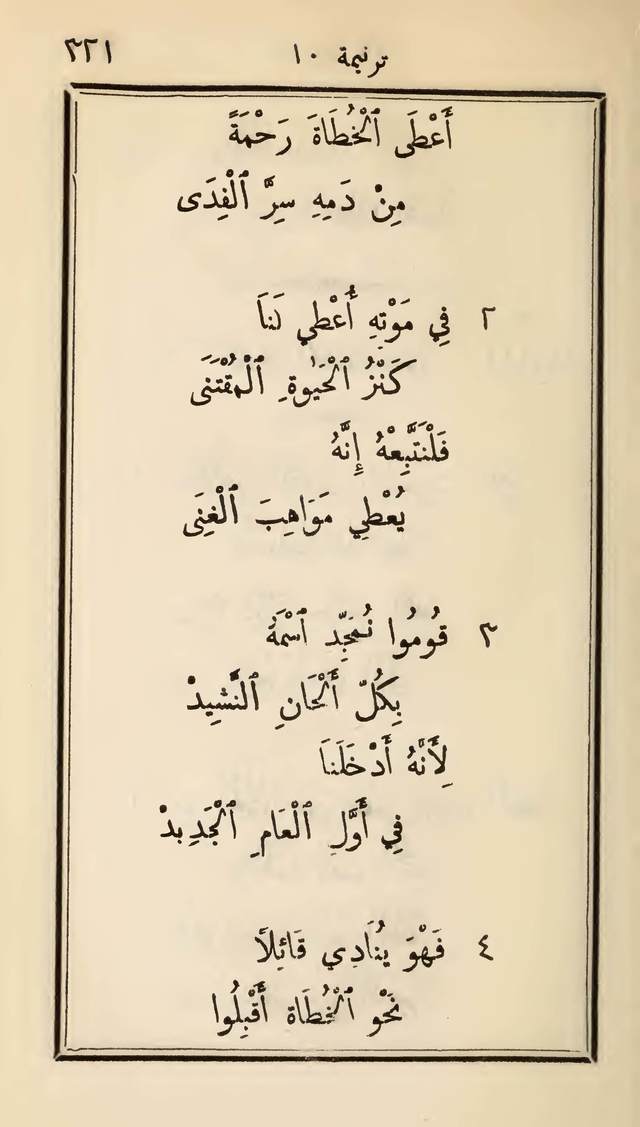 ترنيمة ١٠ ٣٢١
أَعْطَى ٱلْخُطَاةَ رَحْمَةً
مِنْ دَمِهِ سِرَّ ٱلْفِدَى
٢ فِي مَوْتِهِ أُعْطِي لَنَا
كَنْزُ ٱلْحَيٰوةِ ٱلْمُقْتَنَى
فَلْنَتَّبِعْهُ إِنَّهُ
يُعْطِي مَوَاهِبَ ٱلْغِنَى
٣ قُومُوا نُمَجِّد ٱسْمَهُ
بِكُلِّ أَلْحَانِ ٱلنَّشِيدْ
لِأَنَّهُ أَدْخَلَنَا
فِي أَوَّلِ ٱلْعَامِ ٱلْجَدِيدْ
٤ فَهْوَ يُنَادِي قَائِلاً
نَحْو ٱلْخُطَاة أَقْبِلُوا